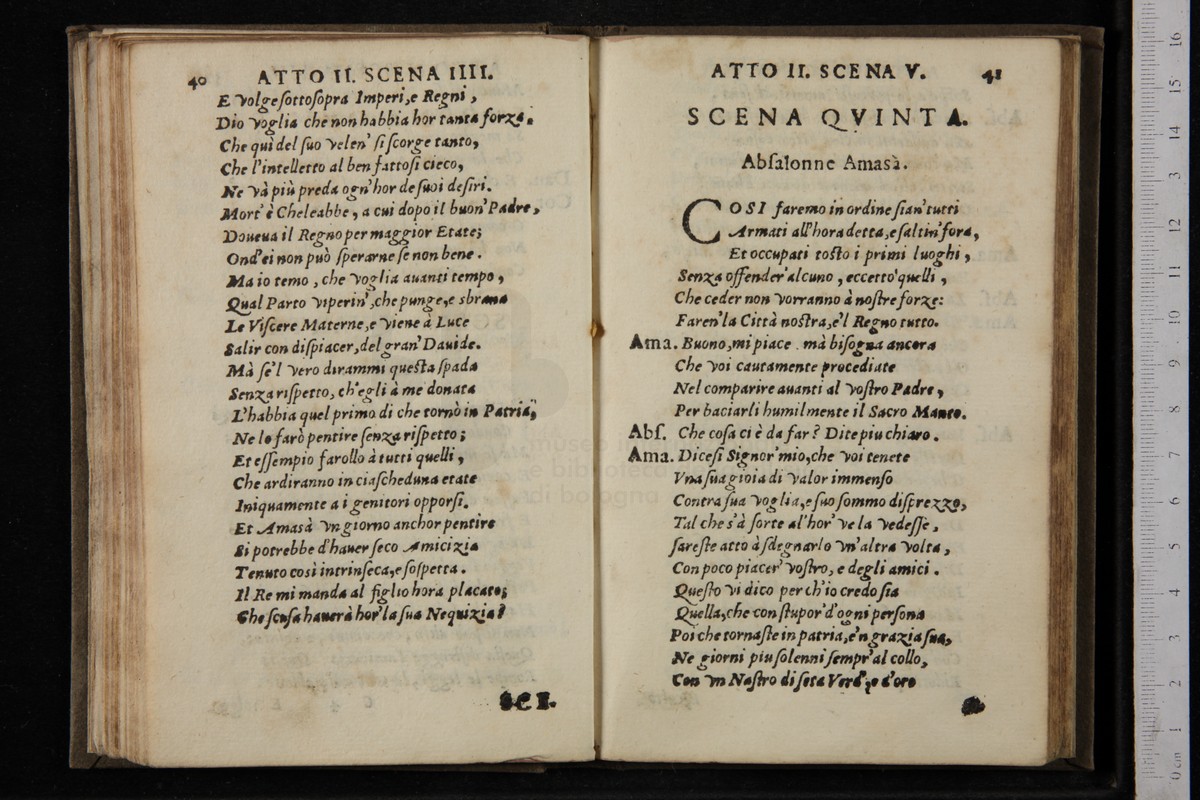 40 ATTO II. SCENA IIII.
E volge ſottoſopra Imperi, e Regni,
Dio voglia che non habbia hor tanta forza.
Che quì del ſuo velen' ſi ſcorge tanto,
Che l'intelletto al ben fattoſi cieco,
Ne và più preda ogn'hor de ſuoi deſiri.
Mort' è Cheleabbe, a cui dopo il buon' Padre,
Doueua il Regno per maggior Etate;
Ond' ei non può ſperarne ſe non bene.
Ma io temo, che voglia auanti tempo,
Qual Parto viperin', che punge, e sbrana
Le Viſcere Materne, e viene à Luce
Salir con diſpiacer, del gran' Dauide.
Mà ſe'l vero dirammi queſta ſpada
Senza riſpetto, ch'egli à me donata
L'habbia quel primo di che tornò in Patria,
Ne lo farò pentire ſenza riſpetto;
Et eſſempio farollo à tutti quelli,
Che ardiranno in ciaſcheduna etate
Iniquamente a i genitori opporſi.
Et Amasà vn giorno anchor pentire
Si potrebbe d'hauer ſeco Amicizia
Tenuto così intrinſeca, e ſoſpetta.
Il Re mi manda al figlio hora placato;
Che ſcuſa hauerà hor' la ſua Nequizia?
SCE.
ATTO II. SCENA V. 41
SCENA QVINTA.
Abſalonne Amasà.
COSI faremo in ordine ſian' tutti
Armati all'hora detta, e ſaltin' fora,
Et occupati toſto i primi luoghi,
Senza offender' alcuno, eccetto' quelli,
Che ceder non vorranno à noſtre forze:
Faren' la Città noſtra, e'l Regno tutto.
Ama. Buono, mi piace. mà biſogna ancora
Che voi cautamente procediate
Nel comparire auanti al voſtro Padre,
Per baciarli humilmente il Sacro Manto.
Abſ. Che coſa ci è da far? Dite piu chiaro.
Ama. Diceſi Signor' mio, che voi tenete
Vna ſua gioia di valor immenſo
Contra ſua voglia, e ſuo ſommo diſprezzo,
Tal che s'à ſorte al'hor' ve la vedeſſe,
ſareſte atto à ſdegnarlo vn' altra volta,
Con poco piacer' voſtro, e degli amici.
Queſto vi dico perch'io credo ſia
Quella, che con ſtupor' d'ogni perſona
Poi che tornaſte in patria, e'n grazia ſua,
Ne giorni piu ſolenni ſempr' al collo,
Con vn Naſtro di ſeta Verd', e d'oro
museo
e biblioteca
di bologna